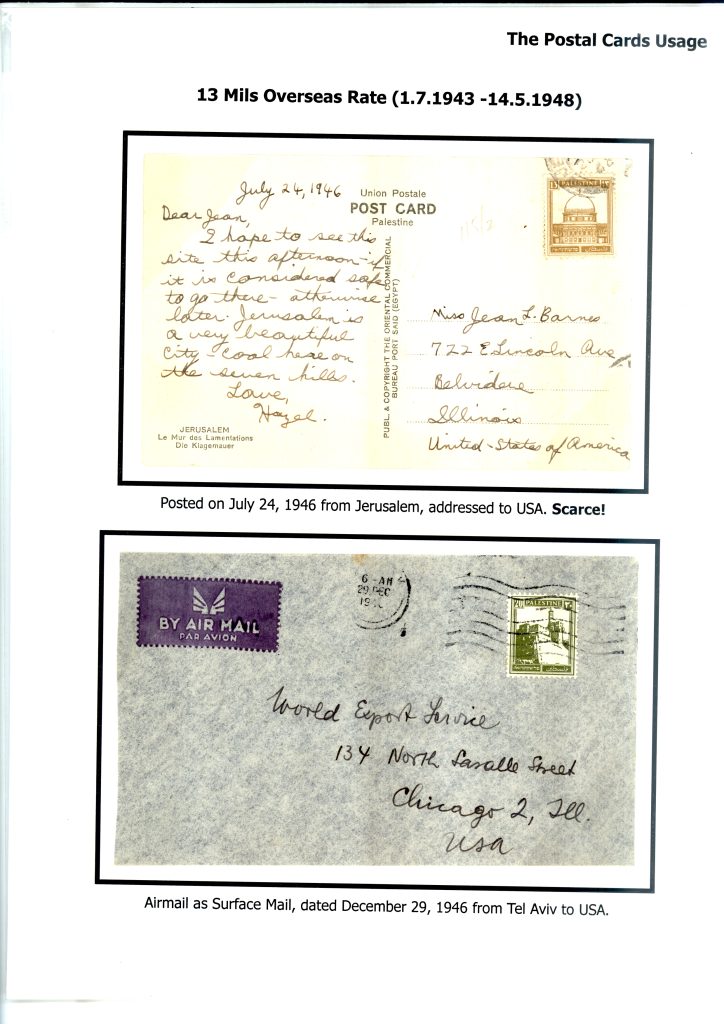 The Postal Cards Usage
13 Mils Overseas Rate (1.7.1943 -14.5.1948)
July 24, 1946
Dear Jean,
I hope to see this
site this afternoon - if
it is considered safe
to go there - otherwise
later. Jerusalem is
a very beautiful
city - cool here on
the seven hills.
Love,
Hazel.
JERUSALEM
Le Mur des Lamentations
Die Klagemauer
Union Postale
POST CARD
Palestine
PUBL. & COPYRIGHT THE ORIENTAL COMMERCIAL
BUREAU PORT SAID (EGYPT)
13 PALESTINE ١٣
Miss Jean L. Barnes
722 E Lincoln Ave
Belvidere
Illinois
United-States of America
Posted on July 24, 1946 from Jerusalem, addressed to USA. Scarce!
BY AIR MAIL
PAR AVION
6 - AM
29 DEC
20 PALESTINE ٢٠
World Export Service
134 North Lasalle Street
Chicago 2, Ill.
USA
Airmail as Surface Mail, dated December 29, 1946 from Tel Aviv to USA.